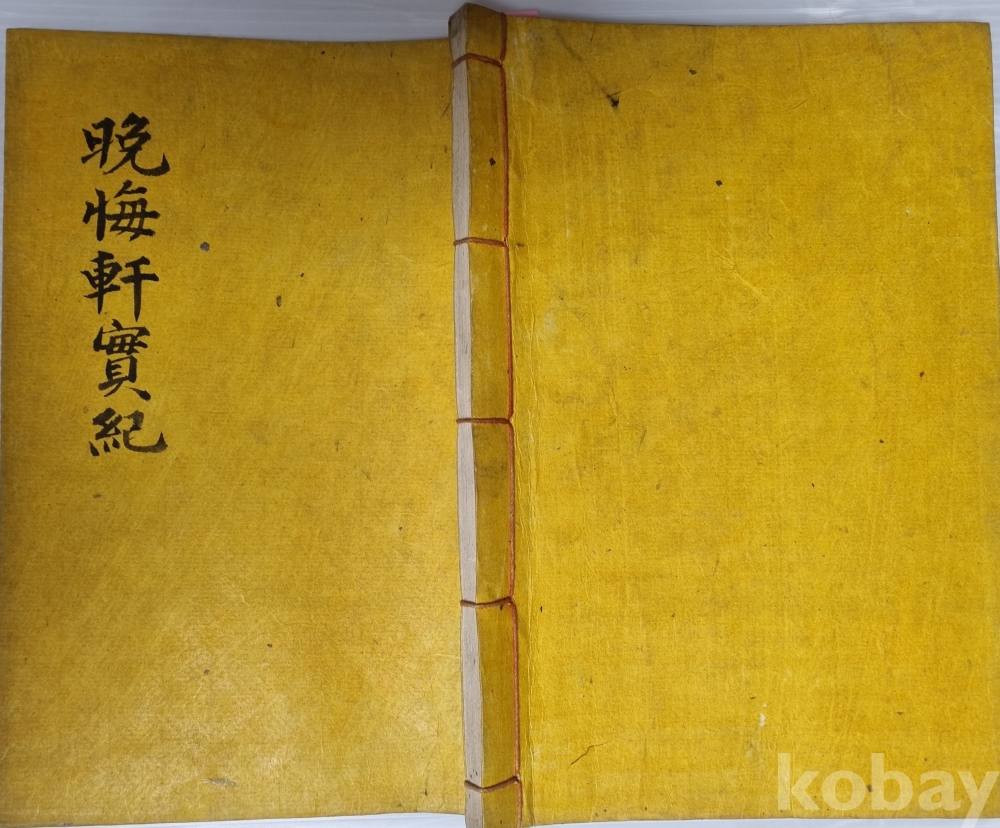 晩悔軒實紀
kobay